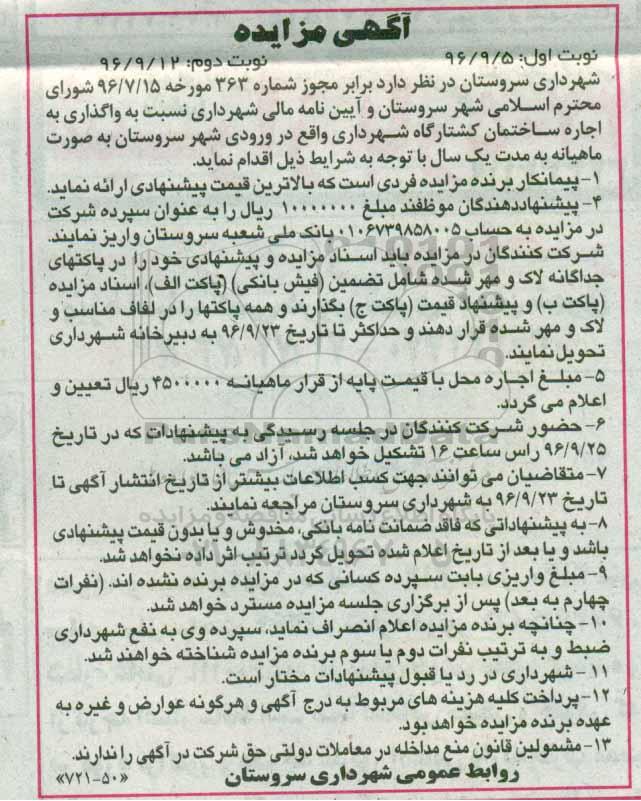 آگهی مزایده
نوبت اول: ۹۶/۹/۵ نوبت دوم: ۹۶/۹/۱۲
شهرداری سروستان در نظر دارد برابر مجوز شماره ۳۶۳ مورخه ۹۶/۷/۱۵ شورای
محترم اسلامی شهر سروستان و آیین نامه مالی شهرداری نسبت به واگذاری به
اجاره ساختمان کشتارگاه شهرداری واقع در ورودی شهر سروستان به صورت
ماهیانه به مدت یک سال با توجه به شرایط ذیل اقدام نماید.
۱- پیمانکار برنده مزایده فردی است که بالاترین قیمت پیشنهادی ارائه نماید.
۴- پیشنهاددهندگان موظفند مبلغ ۱۰۰۰۰۰۰۰ ریال را به عنوان سپرده شرکت
در مزایده به حساب ۰۱۰۶۷۳۹۸۵۸۰۰۵ بانک ملی شعبه سروستان واریز نمایند.
شرکت کنندگان در مزایده باید اسناد مزایده و پیشنهادی خود را در پاکتهای
جداگانه لاک و مهر شده شامل تضمین (فیش بانکی) (پاکت الف)، اسناد مزایده
(پاکت ب) و پیشنهاد قیمت (پاکت ج) بگذارند و همه پاکتها را در لفاف مناسب و
لاک و مهر شده قرار دهند و حداکثر تا تاریخ ۹۶/۹/۲۳ به دبیرخانه شهرداری
تحویل نمایند.
۵- مبلغ اجاره محل با قیمت پایه از قرار ماهیانه ۴۵۰۰۰۰۰ ریال تعیین و
اعلام می گردد.
۶- حضور شرکت کنندگان در جلسه رسیدگی به پیشنهادات که در تاریخ
۹۶/۹/۲۵ راس ساعت ۱۶ تشکیل خواهد شد، آزاد می باشد.
۷- متقاضیان می توانند جهت کسب اطلاعات بیشتر از تاریخ انتشار آگهی تا
تاریخ ۹۶/۹/۲۳ به شهرداری سروستان مراجعه نمایند.
۸- به پیشنهاداتی که فاقد ضمانت نامه بانکی، مخدوش و یا بدون قیمت پیشنهادی
باشد و یا بعد از تاریخ اعلام شده تحویل گردد ترتیب اثر داده نخواهد شد.
۹- مبلغ واریزی بابت سپرده کسانی که در مزایده برنده نشده اند، (نفرات
چهارم به بعد) پس از برگزاری جلسه مزایده مسترد خواهد شد.
۱۰- چنانچه برنده مزایده اعلام انصراف نماید، سپرده وی به نفع شهرداری
ضبط و به ترتیب نفرات دوم یا سوم برنده مزایده شناخته خواهند شد.
۱۱- شهرداری در رد یا قبول پیشنهادات مختار است.
۱۲- پرداخت کلیه هزینه های مربوط به درج آگهی و هرگونه عوارض و غیره به
عهده برنده مزایده خواهد بود.
۱۳- مشمولین قانون منع مداخله در معاملات دولتی حق شرکت در آگهی را ندارند.
روابط عمومی شهرداری سروستان «۷۲۱-۵۰»